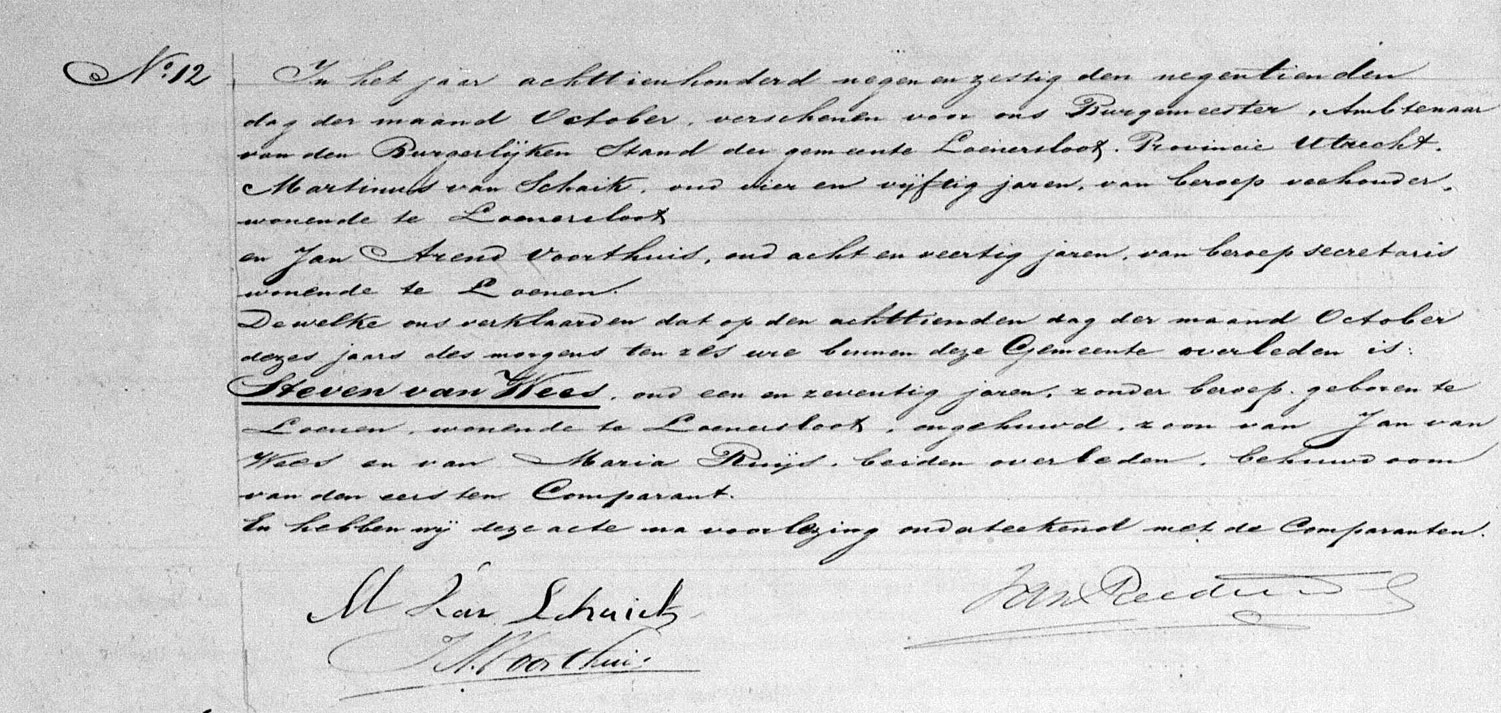 No. 12
In het jaar achttienhonderd negen en zestig den negentienden
dag der maand October, verschenen voor ons Burgemeester, Ambtenaar
van den Burgerlijken Stand der gemeente Loenersloot. Provincie Utrecht.
Martinus van Schaik, oud vier en vijftig jaren, van beroep veehouder,
wonende te Loenersloot
en Jan Arend Voorthuis, oud acht en veertig jaren, van beroep secretaris
wonende te Loenen.
Dewelke ons verklaarden dat op den achttienden dag der maand October
dezes jaars des morgens ten zes ure binnen deze Gemeente overleden is:
Steven van Wees, oud een en zeventig jaren, zonder beroep, geboren te
Loenen, wonende te Loenersloot, ongehuwd, zoon van Jan van
Wees en van Maria Ruijs, beiden overleden, behuwdoom
van den eersten Comparant.
En hebben wij deze acte na voorlezing onderteekend met de Comparanten.
M Van Schaick
JAVoorthuis